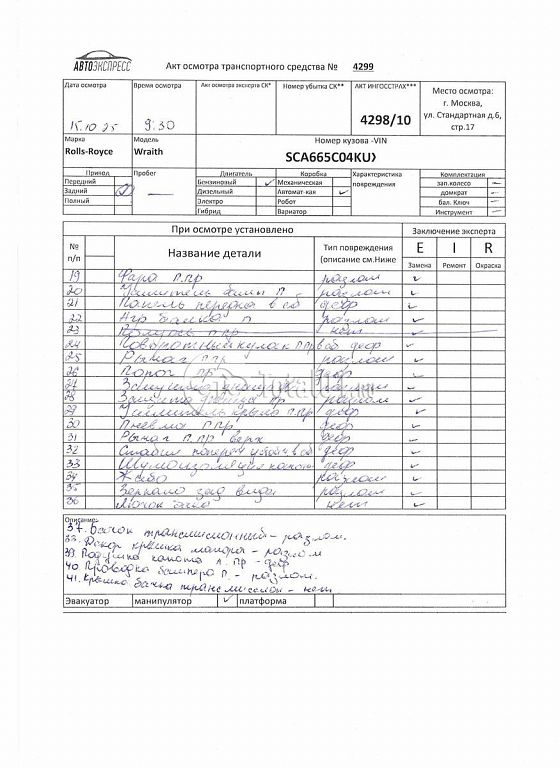 АВТОЭКСПРЕСС
Акт осмотра транспортного средства № 4299
Дата осмотра Время осмотра Акт осмотра эксперта СК* Номер убытка СК** АКТ ИНГОССТРАХ*** Место осмотра:
г. Москва,
ул. Стандартная д.6,
стр.17
15.10 25 9:30 4298/10
Марка Модель Номер кузова -VIN
Rolls-Royce Wraith SCA665C04KUX
Привод Пробег Двигатель Коробка Характеристика повреждения Комплектация
Передний Бензиновый Механическая зап.колесо
Задний Дизельный Автомат-кая домкрат
Полный Электро Робот бал. Ключ
Гибрид Вариатор Инструмент
При осмотре установлено Заключение эксперта
№ п/п Название детали Тип повреждения (описание см.Ниже E I R
Замена Ремонт Окраска
19 Фара П.пр разлом
20 Усилитель П разлом
21 Панель передка в сб деф
22 П разлом
23 П пр нет
24 Поворотный кулак П пр в сб деф
25 Рычаг П пр разлом
26 Порог пр деф
27 разлом
28 пр разлом
29 Усилитель крыла П.пр деф
30 Пневма П пр деф
31 Рычаг П.пр верх деф
32 Стабил попереч в сб деф
33 Шумоизоляция капота деф
34 Жабо разлом
35 Зеркало зад вида разлом
36 нет
Описание:
37. Бачок трансмиссионный - разлом.
38. Декор крышка мотора - разлом
39 Подушка капота п. пр - деф
40 Проводка бампера П. - разлом.
41. Крышка бачка трансмиссион - нет
Эвакуатор манипулятор платформа